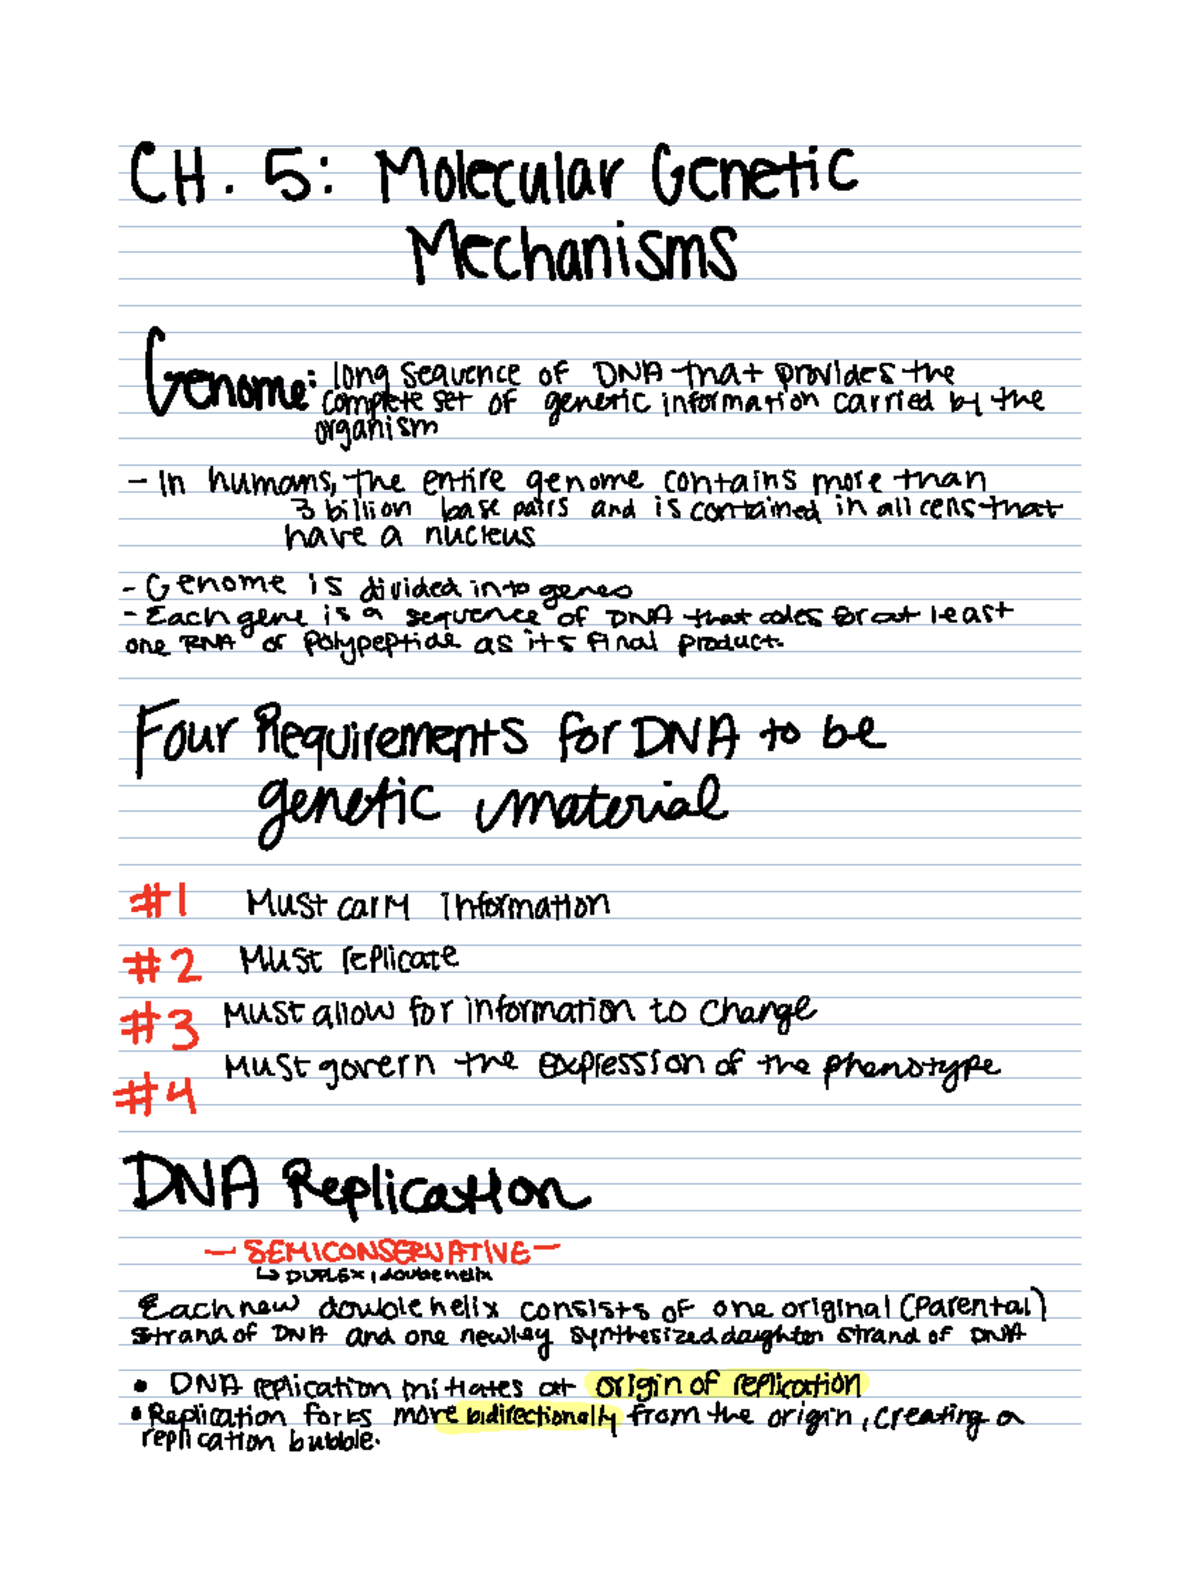 CH. 5: Molecular Genetic
Mechanisms
Genome: long sequence of DNA that provides the
complete set of genetic information carried by the
organism
- In humans, the entire genome contains more than
3 billion base pairs and is contained in all cells that
have a nucleus
- Genome is divided into genes
- Each gene is a sequence of DNA that codes for at least
one RNA or Polypeptide as its final product.
Four Requirements for DNA to be
genetic material
#1 Must carry information
#2 Must replicate
#3 Must allow for information to change
#4 Must govern the expression of the phenotype
DNA Replication
— SEMICONSERVATIVE —
↳ DUPLEX, double helix
Each new double helix consists of one original (Parental)
strand of DNA and one newley synthesized daughter strand of DNA
• DNA replication initiates at origin of replication
• Replication forks move bidirectionally from the origin, creating a
replication bubble.